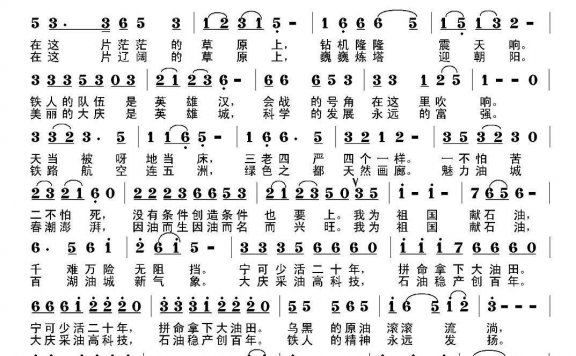 5 3· 5 3 6 5 3 | 1 2 3 1 5 - | 1 6 6 6 5 | 1 5 1 3 2 - |
在这 片茫茫 的 草 原 上， 钻机 隆隆 震 天 响。
在这 片辽阔 的 草 原 上， 巍巍炼塔 迎 朝 阳。
3 3 3 5 3 0 3 | 2 1 2 3 6 - | 6 6 6 5 3 | 3 3 1 2 5 | 1 - - 0 |
铁人的队伍 是 英 雄 汉， 会战 的号角 在这里吹 响。
美丽的大庆 是 英 雄 城， 科学 的发展 永远的富 强。
3 3 2 3 2· 5 | 1 1 6 5 - | 1 6 6· 5 | 3 2 1 2 - | 3 5 3 2 3 0 |
天当 被 呀 地当 床， 三老四 严 四个一样。 一不怕 苦
铁路 航 空 连五 洲， 绿色之 都 天然画廊。 魅力油 城
2 3 2 1 6 0 | 2 2 2 2 3 5 5 3 | 2 1 2 3 5 0 3 5 | 1 - 1 - | 7 6 5 6 - |
二不怕 死， 没有条件创造条件 也 要上。我为 祖 国 献石 油，
春潮澎 湃， 因油而生因油而名 而 兴旺。我为 祖 国 献石 油，
6· 5 6 1 | 2 6 1 5 - | 3 3 3 5 6 6 6 0 | 6 6 5 6 7 7 6 0 |
千 难万 险 无阻 挡。 宁可少活二十年， 拼命拿下大油田。
百 湖油 城 新气 象。 大庆采油高科技， 石油稳产创百年。
6 6 6 1 2 2 2 0 | 6 6 1 2 2 2 0 | 2 2 2 2 1 | 6 6 5 1 2 | 3 - - - |
宁可少活二十年， 拼命拿下大油田。 乌黑 的原油 滚滚 流 淌，
大庆采油高科技， 石油稳产创百年。 铁人 的精神 永远 发 扬。